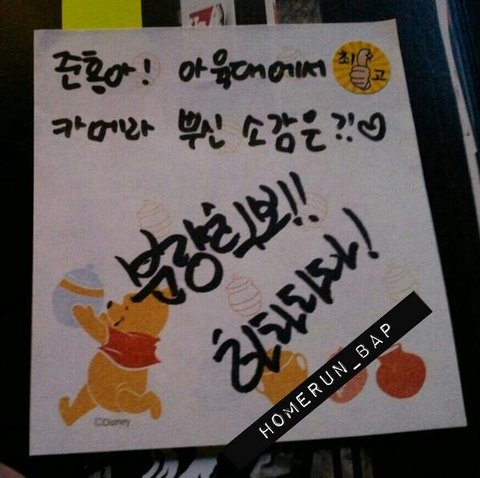 준홍아! 아육대에서
최고
카메라 뿌신 소감은?!♡
분량확보!!
©Disney
HOMERUN_BAP